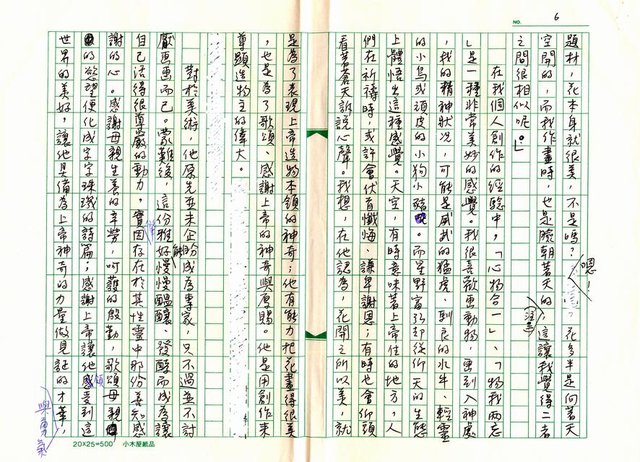 NO. 6
題材，花本身就很美，不是嗎？花多半是向著天
嗯！
空開的，而我作畫時，也是臉朝著天的，這讓我覺得二者
之間很相似呢。」
在我個人創作的經驗中，「心物合一」、「物我兩忘
」是一種非常美妙的感覺。我很喜歡畫動物，畫到入神處
，我的精神狀況，可能是威武的猛虎、馴良的水牛、輕靈
的小鳥或頑皮的小狗小豬。而星野富弘卻從仰天的生態
上體悟出這種感覺。天空，有時意味著上帝住的地方，人
們在祈禱時，或許會伏首懺悔、謙卑謝恩；有時也會仰頭
看著蒼天訴說心聲。我想，在他認為，花開之所以美，就
是為了表現上帝造物本領的神奇；他有能力把花畫得很美
，也是為了歌頌、感謝上帝的神奇與厚賜。他是用創作來
尊顯造物主的偉大。
對於美術，他原先並未企盼成為專家，只不過並不討
厭畫畫而已。蒙難後，這份雅好慢慢醞釀、發酵而成為讓
自己活得很尊嚴的動力，實因存在於其性靈中那份善知感
謝的心。感謝母親生養的辛勞、呵護的殷勤，歌頌母親
的慾望便化成字字珠璣的詩篇；感謝上帝讓他感受到這
世界的美好，讓他具備為上帝神奇的力量做見証的才華，
與勇氣
20×25=500 小木屋紙品